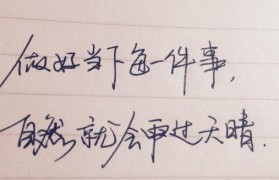 做好当下每一件事，
自然就会雨过天晴.